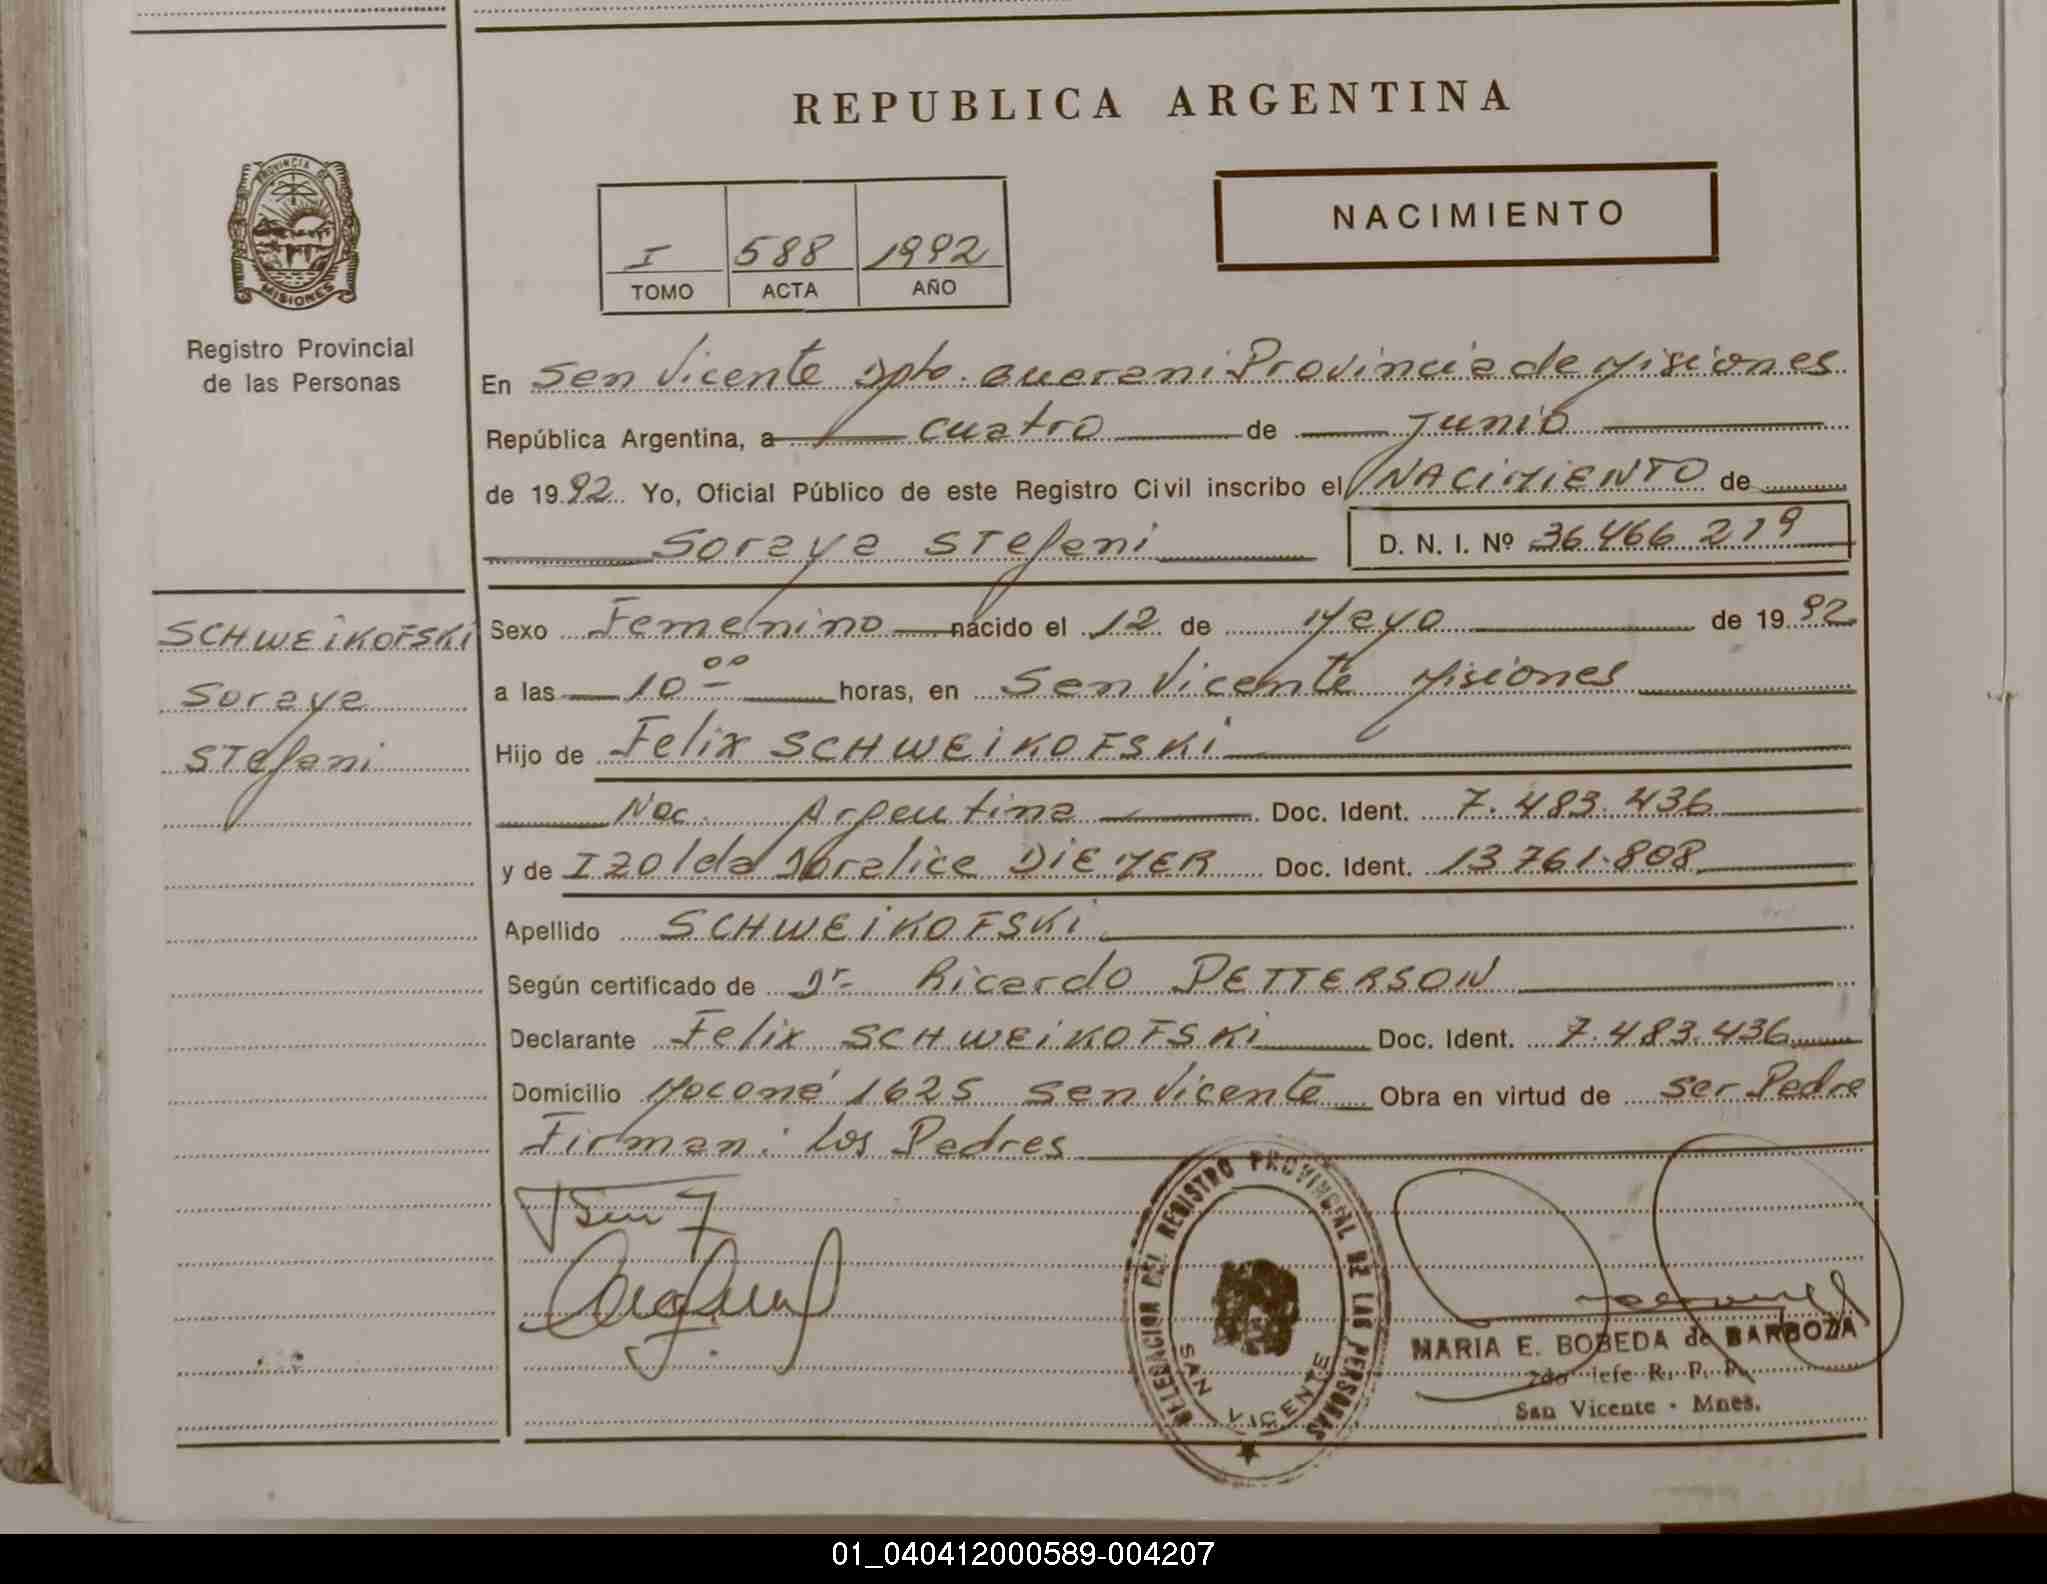 REPUBLICA ARGENTINA
NACIMIENTO
I 588 1992
TOMO ACTA AÑO
PROVINCIA DE
MISIONES
Registro Provincial
de las Personas
En San Vicente Dpto. Guarani Provincia de Misiones
República Argentina, a cuatro de Junio
de 1992 Yo, Oficial Público de este Registro Civil inscribo el NACIMIENTO de
Soraya Stefani D. N. I. Nº 36466219
SCHWEIKOFSKI
Soraya
Stefani
Sexo Femenino nacido el 12 de Mayo de 1992
a las 10 00 horas, en San Vicente Misiones
Hijo de Felix SCHWEIKOFSKI
Nac. Argentina Doc. Ident. 7.483.436
y de Izolda Doralice DIEMER Doc. Ident. 13.761.808
Apellido SCHWEIKOFSKI
Según certificado de Dr Ricardo PETTERSON
Declarante Felix SCHWEIKOFSKI Doc. Ident. 7.483.436
Domicilio Moconá 1625 San Vicente Obra en virtud de ser Padre
Firman: los Padres
DELEGACION DEL REGISTRO PROVINCIAL DE LAS PERSONAS
SAN VICENTE
MARIA E. BOBEDA de BARBOZA
2do Jefe R. P. P.
San Vicente - Mnes.
01_040412000589-004207